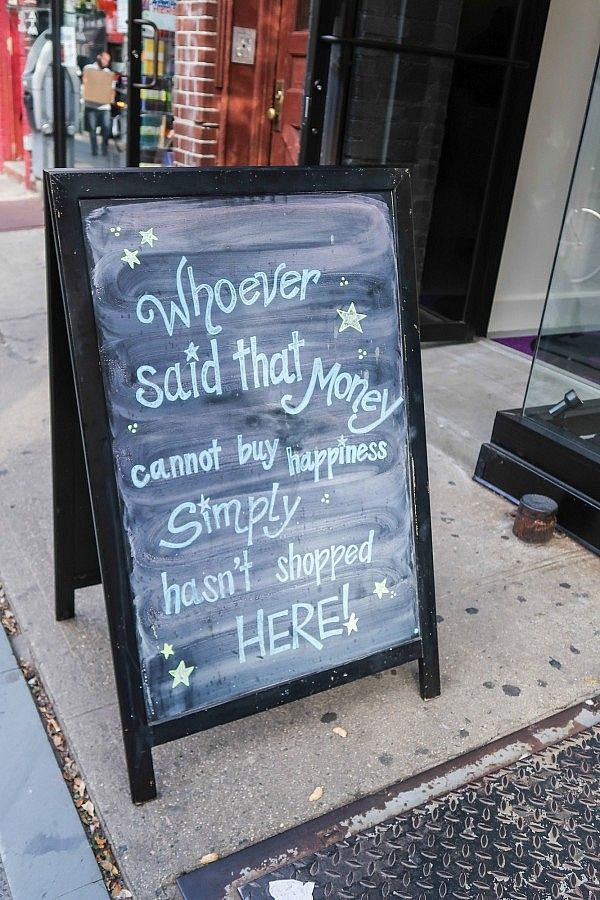 Whoever
said that Money
cannot buy happiness
Simply
hasn't shopped
HERE!